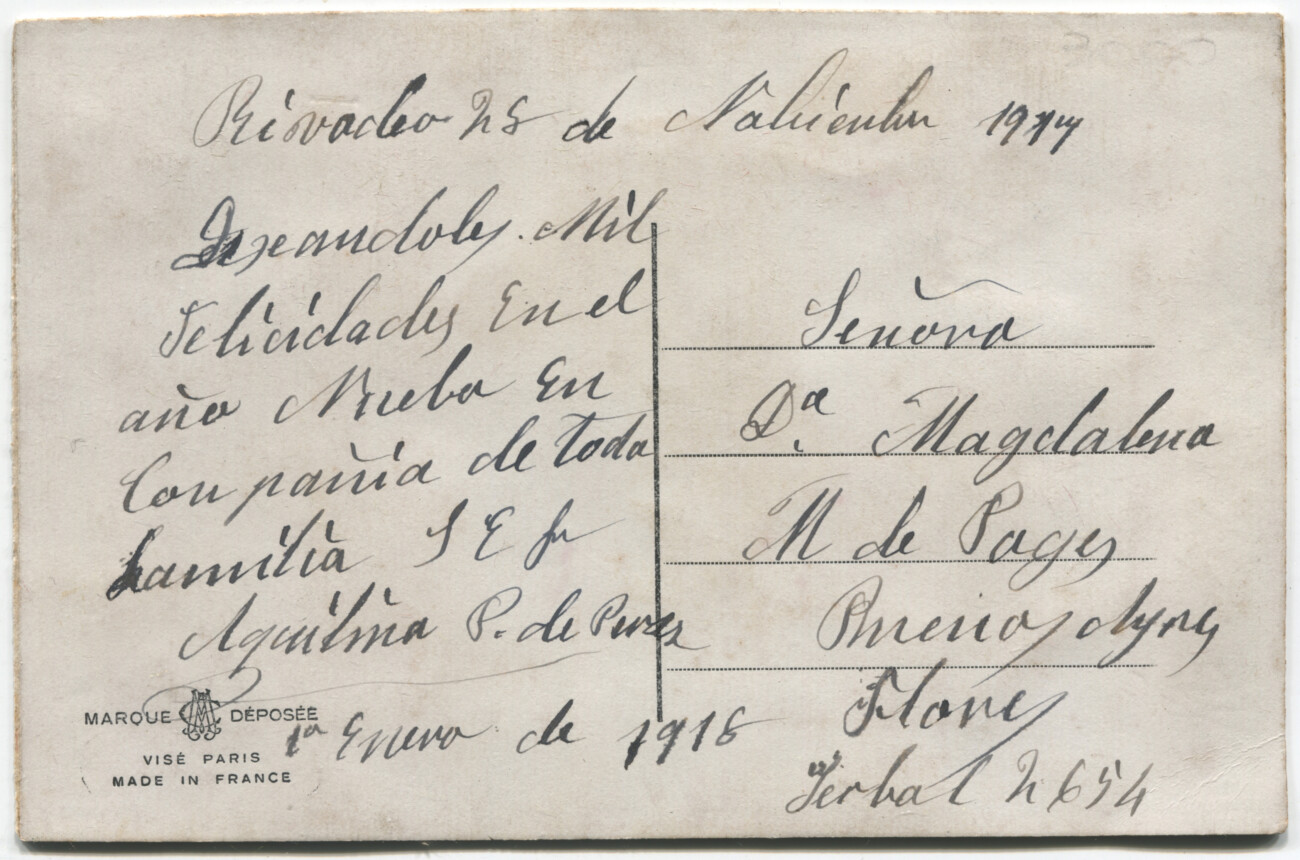 Rivadeo 28 de Nobiembre 1917
Deseandoles Mil
felicidades En el
año Nuebo En
Compañia de toda
familia S E fu
Aquilina P. de Perez
1º Enero de 1918
Señora
Dª Magdalena
M de Pages
Buenos Ayres
Flores
Yerbal 2654
MARQUE DÉPOSÉE
VISÉ PARIS
MADE IN FRANCE